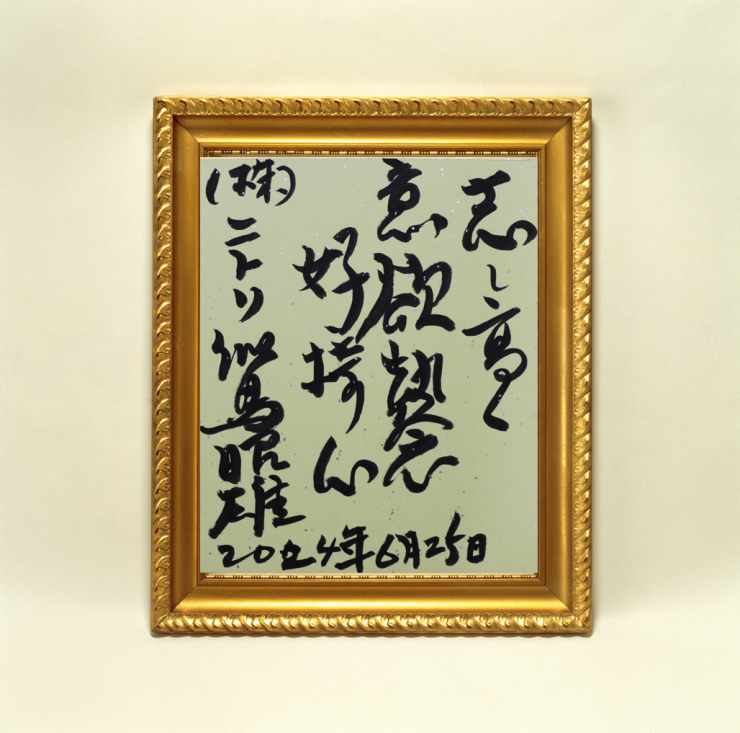 志し高く
意欲執念
好奇心
(株)ニトリ 似鳥昭雄
2024年6月25日